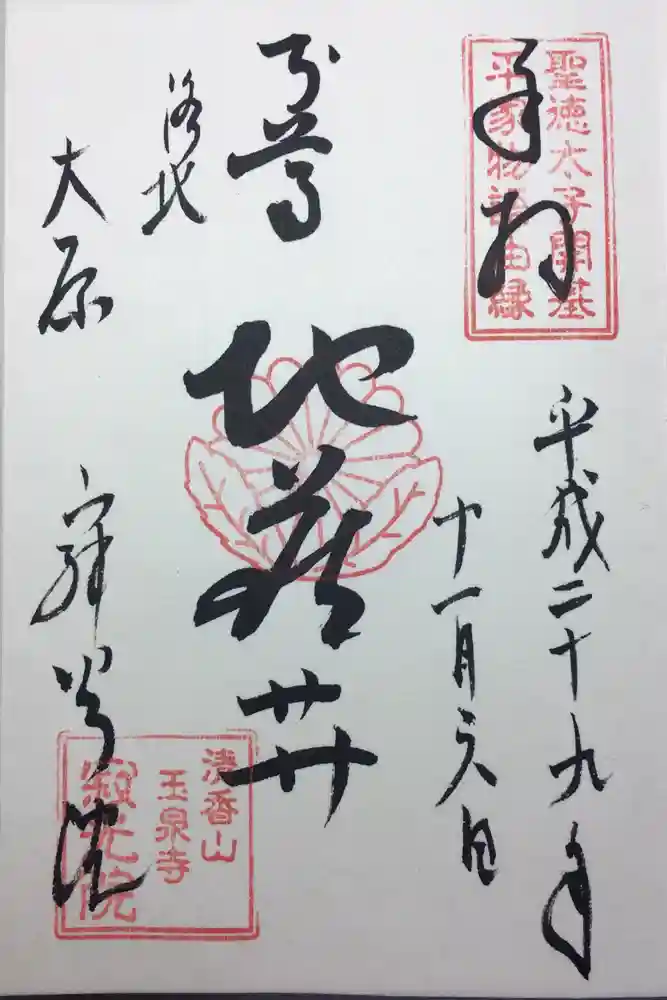 奉拝
聖徳太子開基
平家物語由縁
平成二十九年
十一月六日
尊
地蔵𦬇
洛北
大原
寂光院
清香山
玉泉寺
寂光院